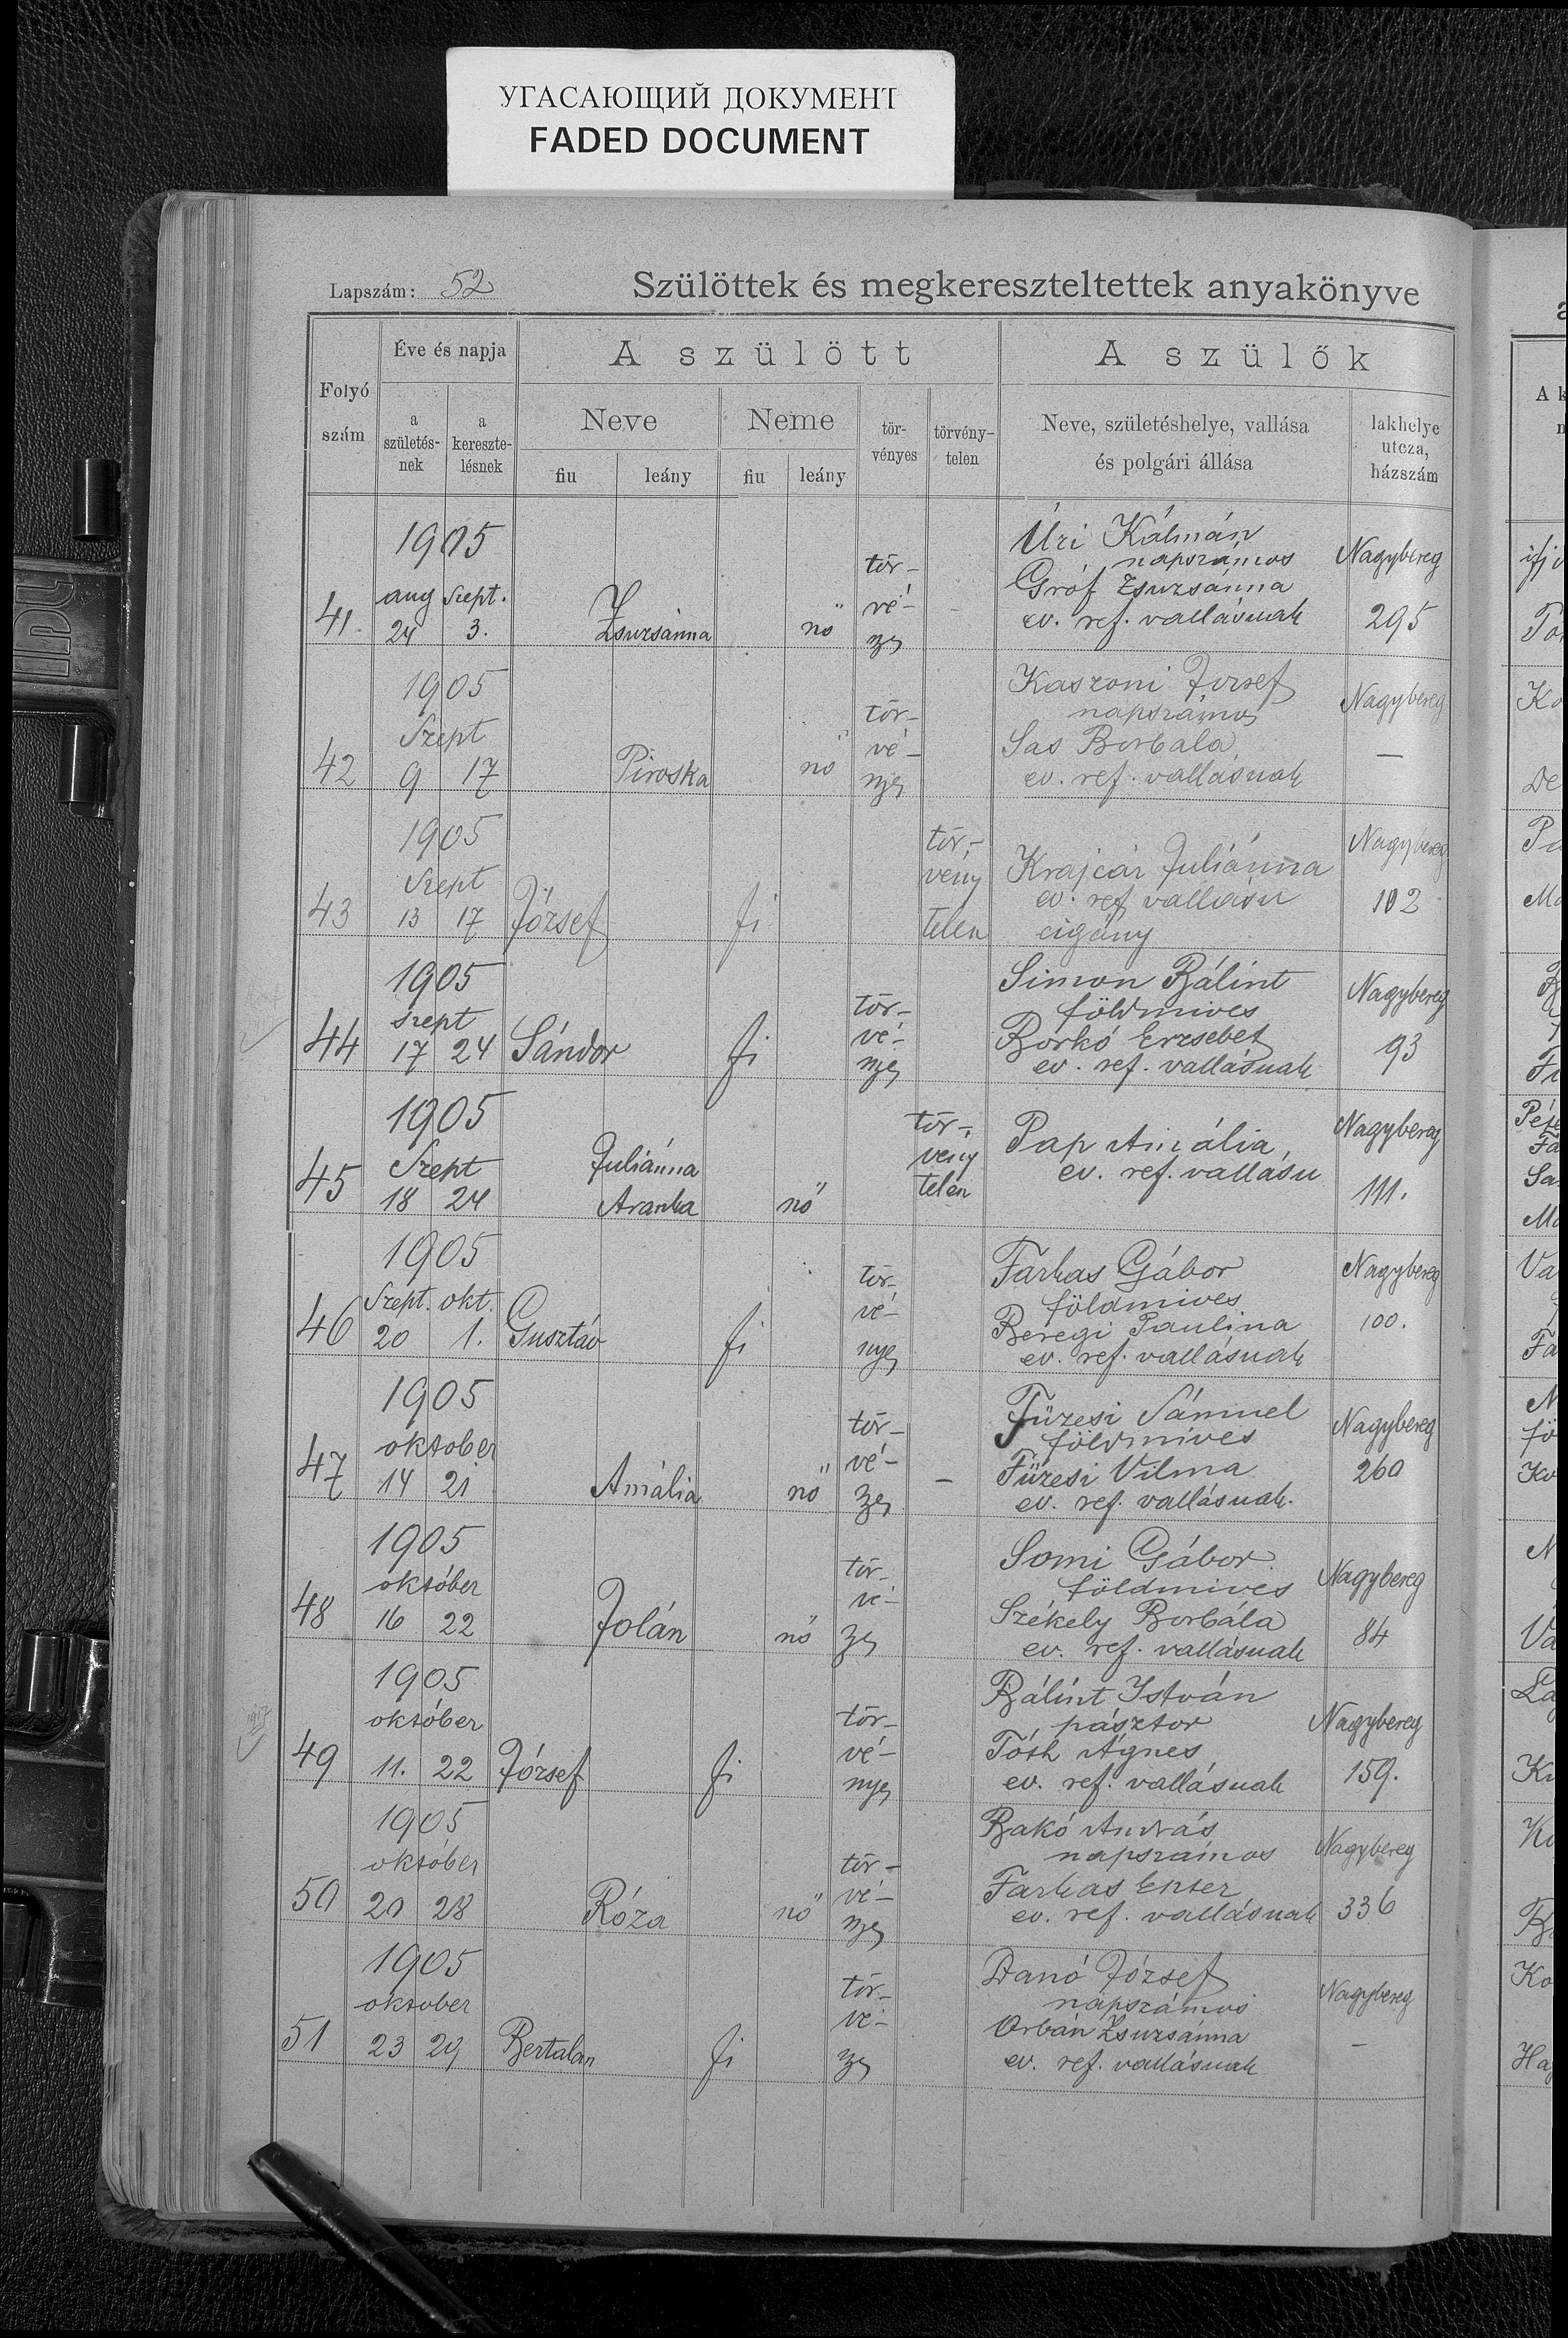 УГАСАЮЩИЙ ДОКУМЕНТ
FADED DOCUMENT
Lapszám: 52
Szülöttek és megkereszteltettek anyakönyve
Folyó szám
Éve és napja
a születés-nek
a kereszte-lésnek
A szülött
Neve
fiu
leány
Neme
fiu
leány
tör-vényes
törvény-telen
A szülők
Neve, születéshelye, vallása
és polgári állása
lakhelye
utcza,
házszám
1905
41 aug 24 Szept. 3. Zsuzsánna nő tör-vé-nyes
Úri Kálmán
napszámos
Gróf Zsuzsánna
ev. ref. vallásuak
Nagybereg
295
1905
Szept
42 9 17 Piroska nő tör-vé-nyes
Kaszoni József
napszámos
Sas Borbala
ev. ref. vallásuak
Nagybereg
—
1905
Szept
43 13 17 József fi tör-vény telen
Krajcár Juliánna
ev. ref vallásu
cigány
Nagybereg
102
1905
szept
44 17 24 Sándor fi tör-vé-nyes
Simon Bálint
földmives
Borkó Erzsebet
ev. ref. vallásuak
Nagybereg
93
1905
Szept
45 18 24 Juliánna Aranka nő tör-vény telen
Pap Amália
ev. ref. vallásu
Nagybereg
111.
1905
46 Szept. 20 okt. 1. Gusztáv fi tör-vé-nyes
Farkas Gábor
földmives
Beregi Paulina
ev. ref. vallásuak
Nagybereg
100.
1905
oktober
47 14 21 Amália nő tör-vé-nyes —
Füzesi Sámuel
földmives
Füzesi Vilma
ev. ref. vallásuak.
Nagybereg
260
1905
október
48 16 22 Jolán nő tör-vé-nyes
Somi Gábor
földmives
Székely Borbála
ev. ref. vallásuak
Nagybereg
84
1905
október
49 11. 22 József fi tör-vé-nyes
Bálint István
pásztor
Tóth Ágnes
ev. ref. vallásuak
Nagybereg
159.
1905
október
50 20 28 Róza nő tör-vé-nyes
Bakó András
napszámos
Farkas Eszter
ev. ref. vallásuak
Nagybereg
336
1905
oktober
51 23 29 Bertalan fi tör-vé-nyes
Danó József
napszámos
Orbán Zsuzsánna
ev. ref. vallásuak
Nagybereg
—